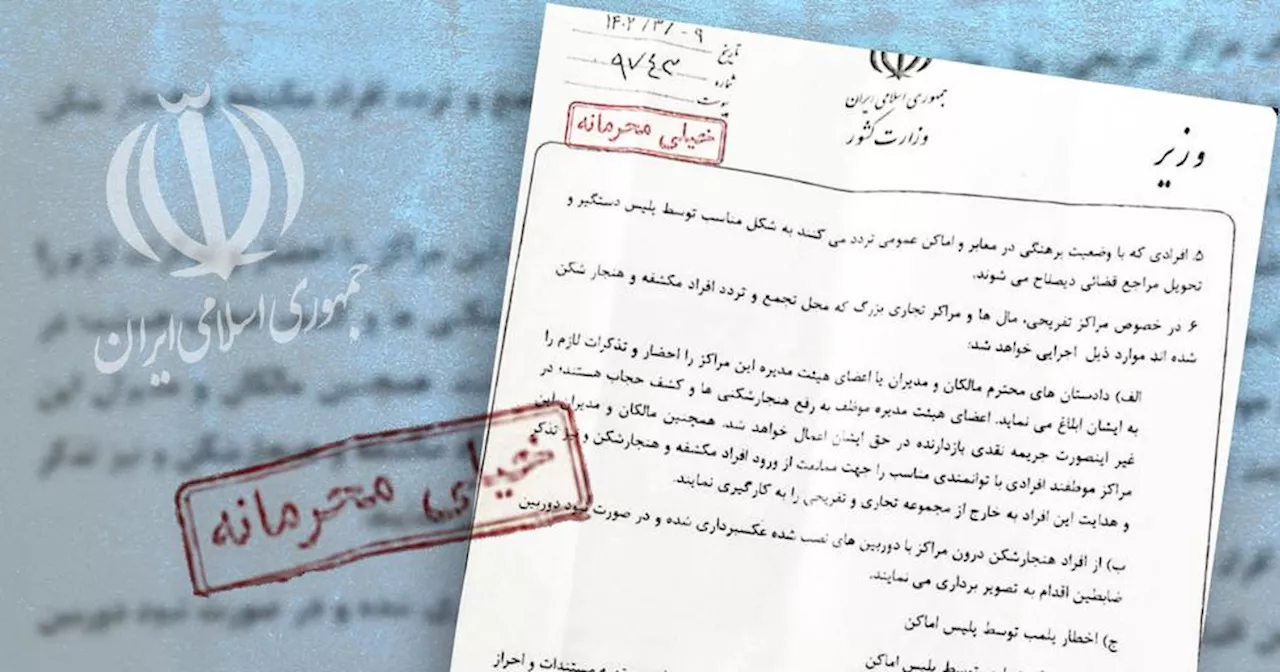 تاریخ ۱۴۰۲/۳/۰۹
شماره ۹۷۴۳
پیوست
خیلی محرمانه
جمهوری اسلامی ایران
وزارت کشور
وزیر
۵. افرادی که با وضعیت برهنگی در معابر و اماکن عمومی تردد می کنند به شکل مناسب توسط پلیس دستگیر و
تحویل مراجع قضائی ذیصلاح می شوند.
۶. در خصوص مراکز تفریحی، مال ها و مراکز تجاری بزرگ که محل تجمع و تردد افراد مکشفه و هنجار شکن
شده اند موارد ذیل اجرایی خواهد شد:
الف) دادستان های محترم مالکان و مدیران یا اعضای هیئت مدیره این مراکز را احضار و تذکرات لازم را
به ایشان ابلاغ می نماید. اعضای هیئت مدیره موظف به رفع هنجارشکنی ها و کشف حجاب هستند؛ در
غیر اینصورت جریمه نقدی بازدارنده در حق ایشان اعمال خواهد شد. همچنین مالکان و مدیران این
مراکز موظفند افرادی با توانمندی مناسب را جهت ممانعت از ورود افراد مکشفه و هنجارشکن و نیز تذکر
و هدایت این افراد به خارج از مجموعه تجاری و تفریحی را به کارگیری نمایند.
ب) از افراد هنجارشکن درون مراکز با دوربین های نصب شده عکسبرداری شده و در صورت نبود دوربین
ضابطین اقدام به تصویر برداری می نمایند.
ج) اخطار پلمب توسط پلیس اماکن
توسط پلیس اماکن
مستندات و احراز
جمهوری اسلامی ایران
خیلی محرمانه